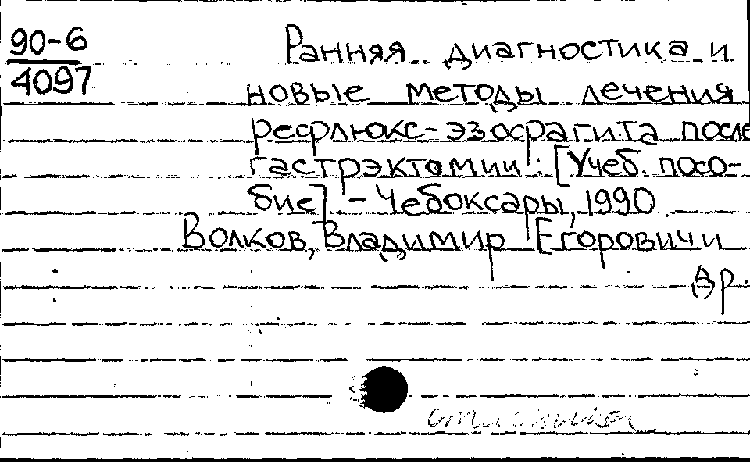 90-6
4097
Ранняя диагностика и
новые методы лечения
рефлюкс-эзофагита после
гастрэктомии : [Учеб. посо-
бие] - Чебоксары, 1990
Волков, Владимир Егорович и
др.